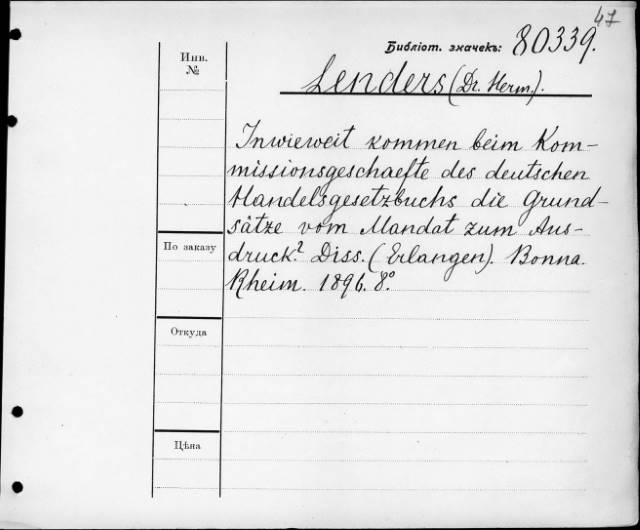 47
Библіот. значекъ: 80339.
Инв. №
Lenders (Dr. Herm.).
Inwieweit kommen beim Kom-
missionsgeschaefte des deutschen
Handelsgesetzbuchs die Grund-
sätze vom Mandat zum Aus-
druck? Diss. (Erlangen). Bonna.
Rheim. 1896. 8°.
По заказу
Откуда
Цѣна